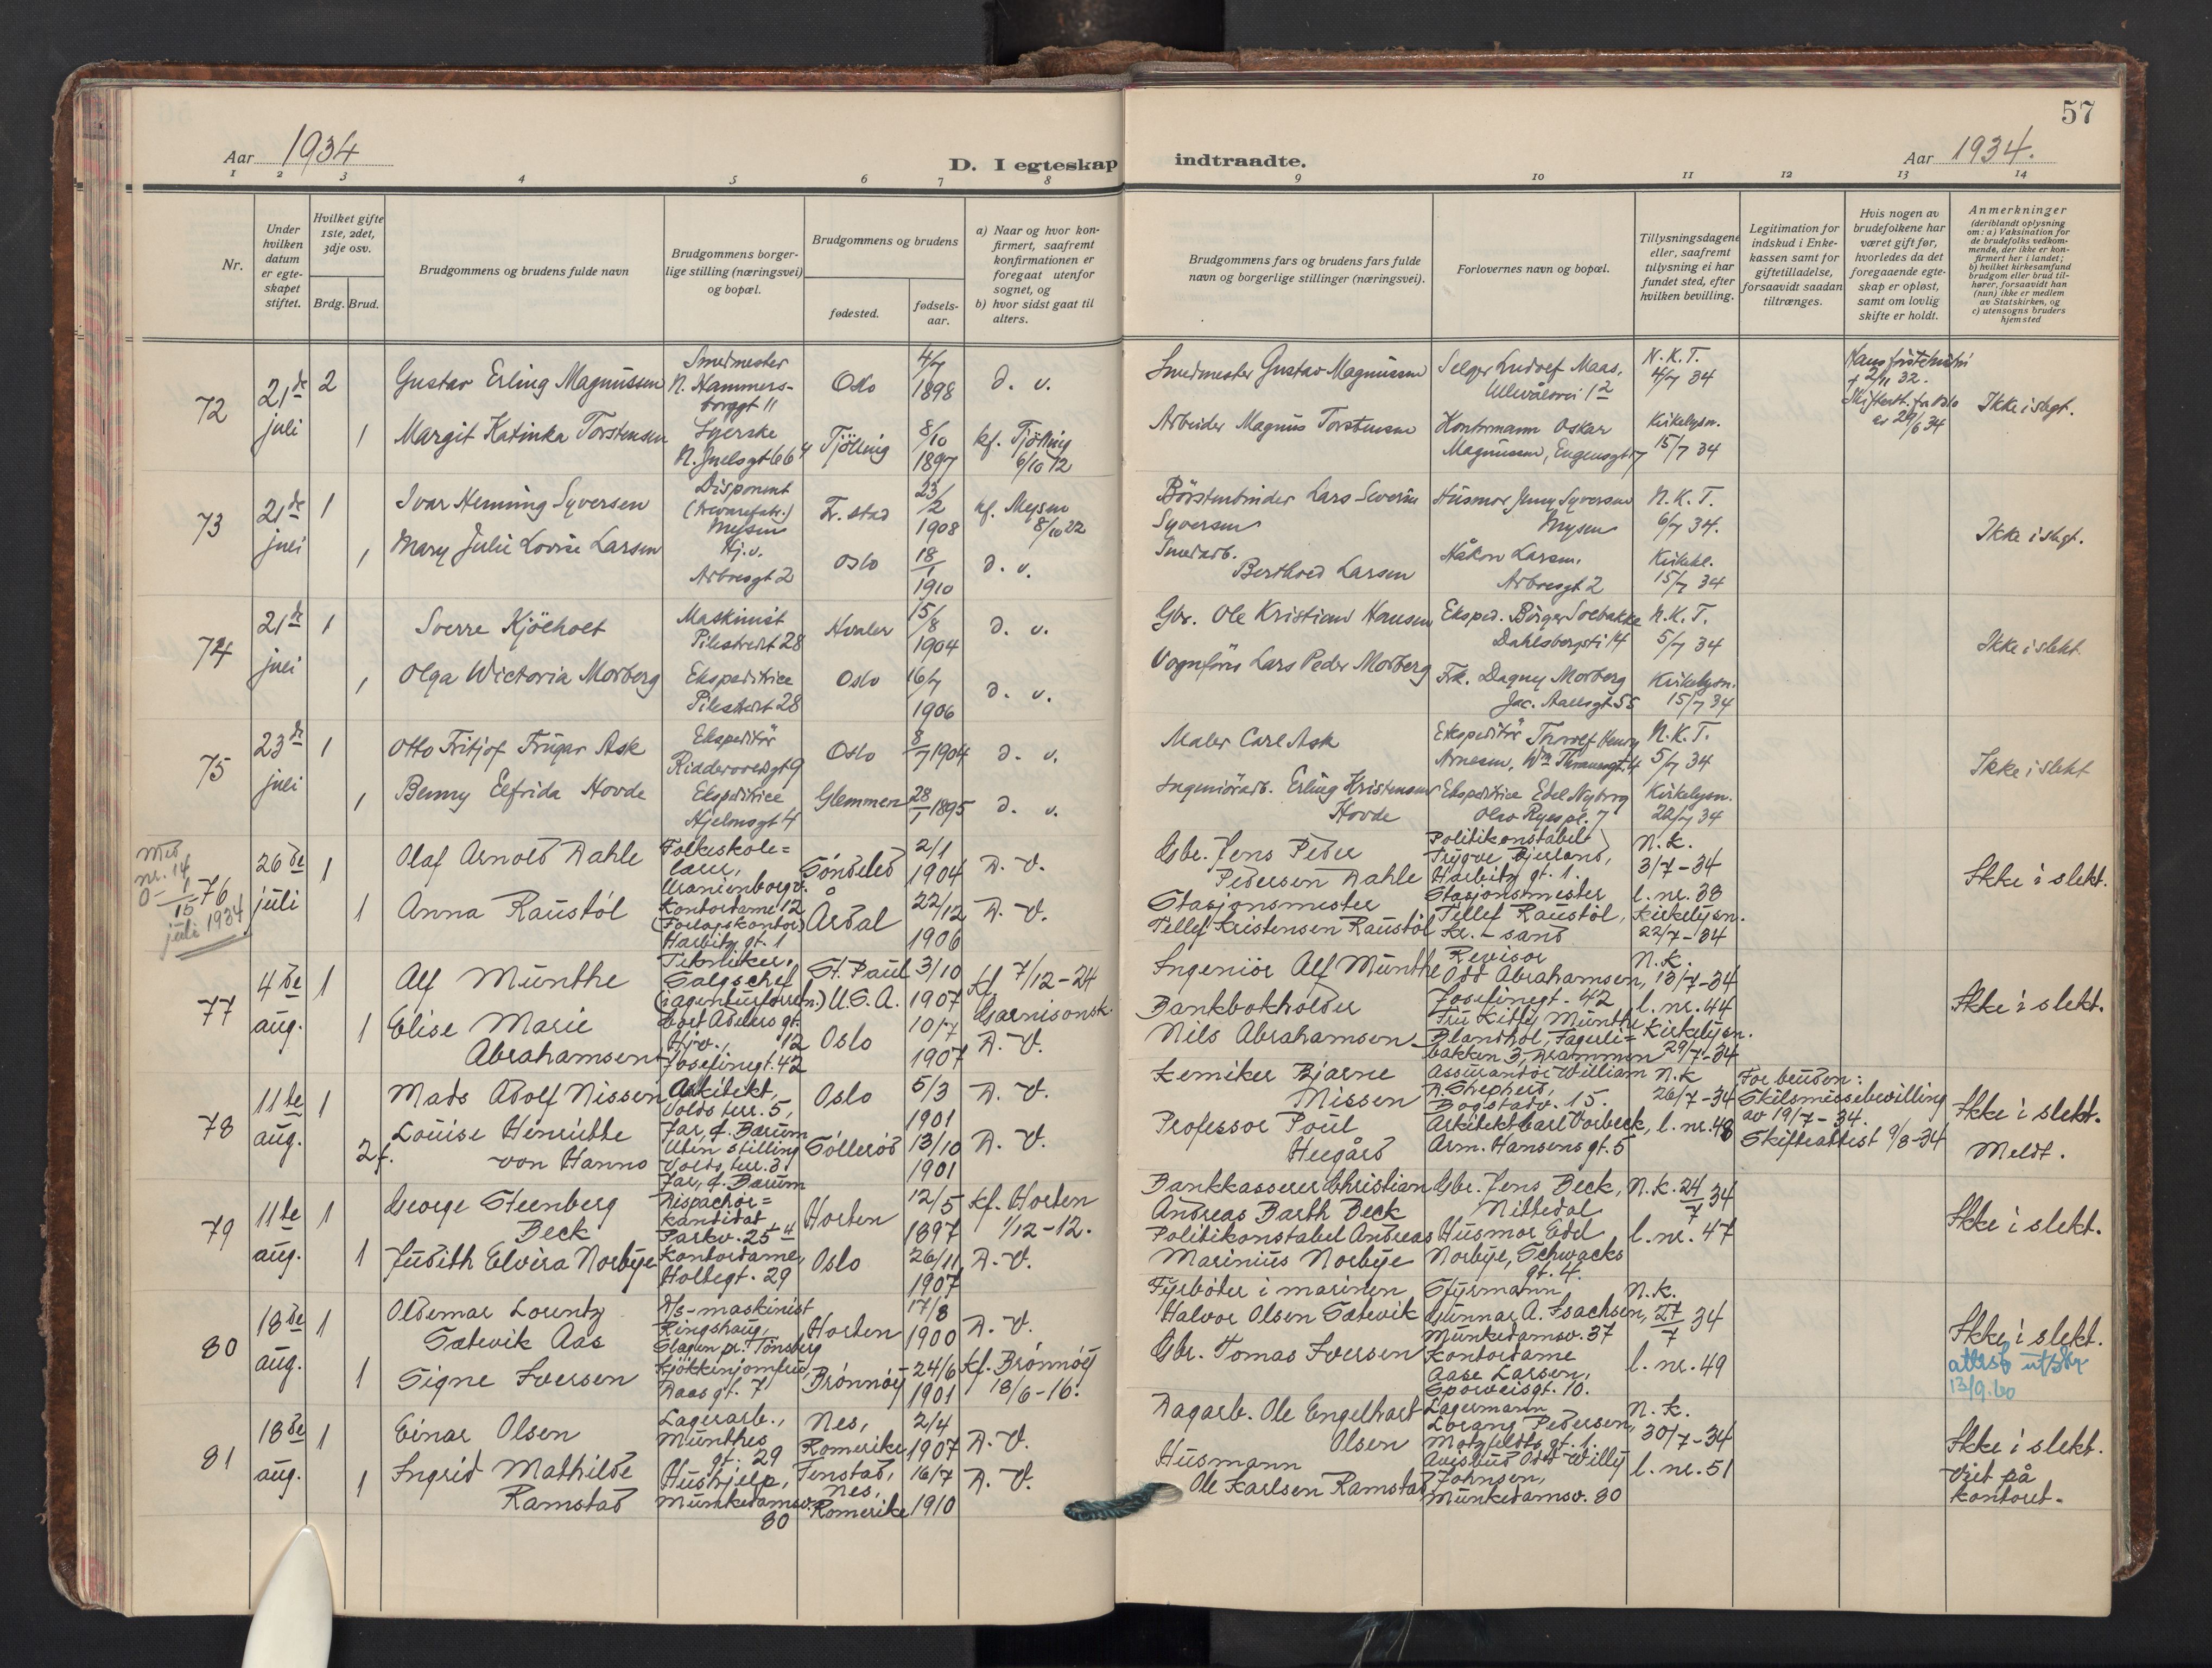 57
Aar 1934
D. I egteskap indtraadte.
Aar 1934.
1 2 3 4 5 6 7 8 9 10 11 12 13 14
Nr.
Under hvilken datum er egteskapet stiftet.
Hvilket gifte 1ste, 2det, 3dje osv.
Brdg. Brud.
Brudgommens og brudens fulde navn
Brudgommens borgerlige stilling (næringsvei) og bopæl.
Brudgommens og brudens
fødested.
fødselsaar.
a) Naar og hvor konfirmert, saafremt konfirmationen er foregaat utenfor sognet, og
b) hvor sidst gaat til alters.
Brudgommens fars og brudens fars fulde navn og borgerlige stillinger (næringsvei).
Forlovernes navn og bopæl.
Tillysningsdagene eller, saafremt tillysning ei har fundet sted, efter hvilken bevilling.
Legitimation for indskud i Enkekassen samt for giftetilladelse, forsaavidt saadan tiltrænges.
Hvis nogen av brudefolkene har været gift før, hvorledes da det foregaaende egteskap er opløst, samt om lovlig skifte er holdt.
Anmerkninger
(deriblandt oplysning om: a) Vaksination for de brudefolks vedkommende, der ikke er konfirmert her i landet;
b) hvilket kirkesamfund brudgom eller brud tilhører, forsaavidt han (hun) ikke er medlem av Statskirken, og
c) utensogns bruders hjemsted
72
21de juli
2
Gustav Erling Magnussen
Smedmester
N. Hammersborggt 11
Oslo
4/7 1898
d. v.
Smedmester Gustav Magnussen
Selger Ludolf Maas,
Ullevålsvei 1²
N.K.T.
4/7 34
Hans første hustru
† 2/11 32.
er 29/6 34
Ikke i slegt.
1
Margit Katinka Torstensen
Syerske
N. Juelsgt 66 4
Tjølling
8/10 1897
kf. Tjølling
6/10 12
Arbeider Magnus Torstensen
Kontormann Oskar
Magnussen, Eugensgt 17
Kirkelysn.
15/7 34
73
21de juli
1
Ivar Henning Syversen
Disponent
Mysen
Fr.stad
23/2 1908
kf. Mysen
8/10 22
Børstenbinder Lars Severin
Syversen
Husmor Jenny Syversen
Mysen
N.K.T.
6/7 34.
Ikke i slegt.
1
Mary Julie Lovise Larsen
Hj.v.
Arbosgt 2
Oslo
18/1 1910
d. v.
Smedarb.
Berthod Larsen
Håkon Larsen.
Arbosgt 2
Kirkel.
15/7 34
74
21de juli
1
Sverre Kjölholt
Maskinist
Pilestredt 28
Hvaler
15/8 1904
d. v.
Gbr. Ole Kristian Hansen
Eksped. Börger Solbakke
Dahlsbergsti 14
N.K.T.
5/7 34
Ikke i slekt
1
Olga Wictoria Morberg
Ekspeditrice
Pilestredt 28
Oslo
16/7 1906
d. v.
Vognfører Lars Peder Morberg
Frk. Dagny Morberg
Jac. Aallsgt. 55
Kirkelysn.
15/7 34
75
23de juli
1
Otto Fritjof Trugar Ask
Ekspeditör
Ridderovoldsgt 9
Oslo
8/7 1904
d. v.
Maler Carl Ask
Ekspeditör Thorolf Henry
Arnesen, Wm Thranesgt. 4
N.K.T.
5/7 34
Ikke i slekt
1
Benny Elfrida Hovde
Ekspeditrice
Hjelmsgt 4
Glemmen
28/1 1895
d. v.
Ingeniörarb. Erling Kristensen
Hovde
Ekspeditrice Edel Nyborg
Olav Ryes pl. 7
Kirkelysn.
22/7 34
Med nr. 14
0 – 1/15 juli 1934
76
26de juli
1
Olaf Arnold Dahle
Folkeskole=
lærer,
Uranienborgv.
12
Søndeled
2/1 1904
D. V.
Gbr. Jens Peder
Pedersen Dahle
Politikonstabel
Trygve Bjerland,
Harbitz gt. 1.
N.K.
3/7-34
l. nr. 38
Ikke i slekt.
1
Anna Raustøl
Kontordame
(Forlagskontor)
Harbitz gt. 1
Årdal
22/12 1906
D. V.
Stasjonsmester
Tellef Kristensen Raustøl
Stasjonsmester
Tellef Raustøl,
Kr.-sand
Kirkelysn.
22/7-34
77
4de aug.
1
Alf Munthe
Tekniker,
Salgschef
(i agenturforretn.)
Cort Adelers gt.
12
St. Paul
U.S.A.
3/10 1907
kf 7/12-24
Garnisonsk.
Ingeniør Alf Munthe
Revisor
Odd Abrahamsen,
Josefinegt. 42
N.K.
13/7-34
l. nr. 44
Ikke i slekt.
1
Elise Marie
Abrahamsen
Hjv.,
Josefinegt. 42
Oslo
10/7 1907
D. V.
Bankbokholder
Nils Abrahamsen
Fru Kitty Munthe
Blandhol, Fagerli=
bakken 3, Drammen
Kirkelysn.
29/7-34
78
11te aug.
1
Mads Adolf Nissen
Arkitekt,
Volds terr. 5,
Jar, p. Bærum
Oslo
5/3 1901
D. V.
Kemiker Bjarne
Nissen
Assurandør William
D. Shepherd,
Bogstadv. 15.
N.K
26/7-34
l. nr. 48
For bruden:
Skilsmissebevilling
av 19/7-34.
Skifteattest 9/8-34
Ikke i slekt.
Meldt.
2 f.
Louise Henriette
von Hanno
Uten stilling
Volds terr. 3
Jar, p. Bærum
Söllerød
13/10 1901
D. V.
Professor Poul
Heegård
Arkitekt Carl Vorbeck,
Arm. Hansens gt. 5
79
11te aug.
1
George Steenberg
Beck
Dispachør=
kandidat
Parkv. 25 4
Horten
12/5 1897
kf. Horten
1/12-12.
Bankkasserer Christian
Andreas Barth Beck
Gbr. Jens Beck,
Nittedal
N.K. 24/7 34
l. nr. 47
Ikke i slekt.
1
Judith Elvira Norbye
Kontordame,
Holtegt. 29
Oslo
26/11 1907
D. V.
Politikonstabel Andreas
Marinius Norbye
Husmor Edel
Norbye, Schwachs
gt. 4.
80
18de aug.
1
Oldemar Lorentz
Sætevik Aas
D/S-maskinist
Ringshaug,
Slagen pr. Tönsberg
Horten
17/8 1900
D. V.
Fyrbøter i marinen
Halvor Olsen Sætevik
Styrmann
Gunnar A. Isachsen,
Munkedamsv. 37
N.K.
27/7 34
l. nr. 49
Ikke i slekt.
attest utskr
13/9.60
1
Signe Iversen
Kjökkenjomfru,
Daas gt. 7
Brønnøy
24/6 1901
kf. Brønnøy
18/6-16.
Gbr. Tomas Iversen
Kontordame
Aase Larsen,
Sporveisgt. 10.
81
18de aug.
1
Einar Olsen
Lagerarb.,
Munthes
gt. 29
Nes,
Romerike
2/4 1907
D. V.
Dagarb. Ole Engelhart
Olsen
Lagermann
Lorang Pedersen,
Motzfeldts gt. 1.
N.K.
30/7-34
l. nr. 51
Ikke i slekt.
Viet på
kontoret.
1
Ingrid Mathilde
Ramstad
Hushjelp,
Munkedamsv.
80
Tenstad,
Nes,
Romerike
16/7 1910
D. V.
Husmann
Ole Karlsen Ramstad
Avisbud Odd Willy
Johnsen,
Munkedamsv. 80